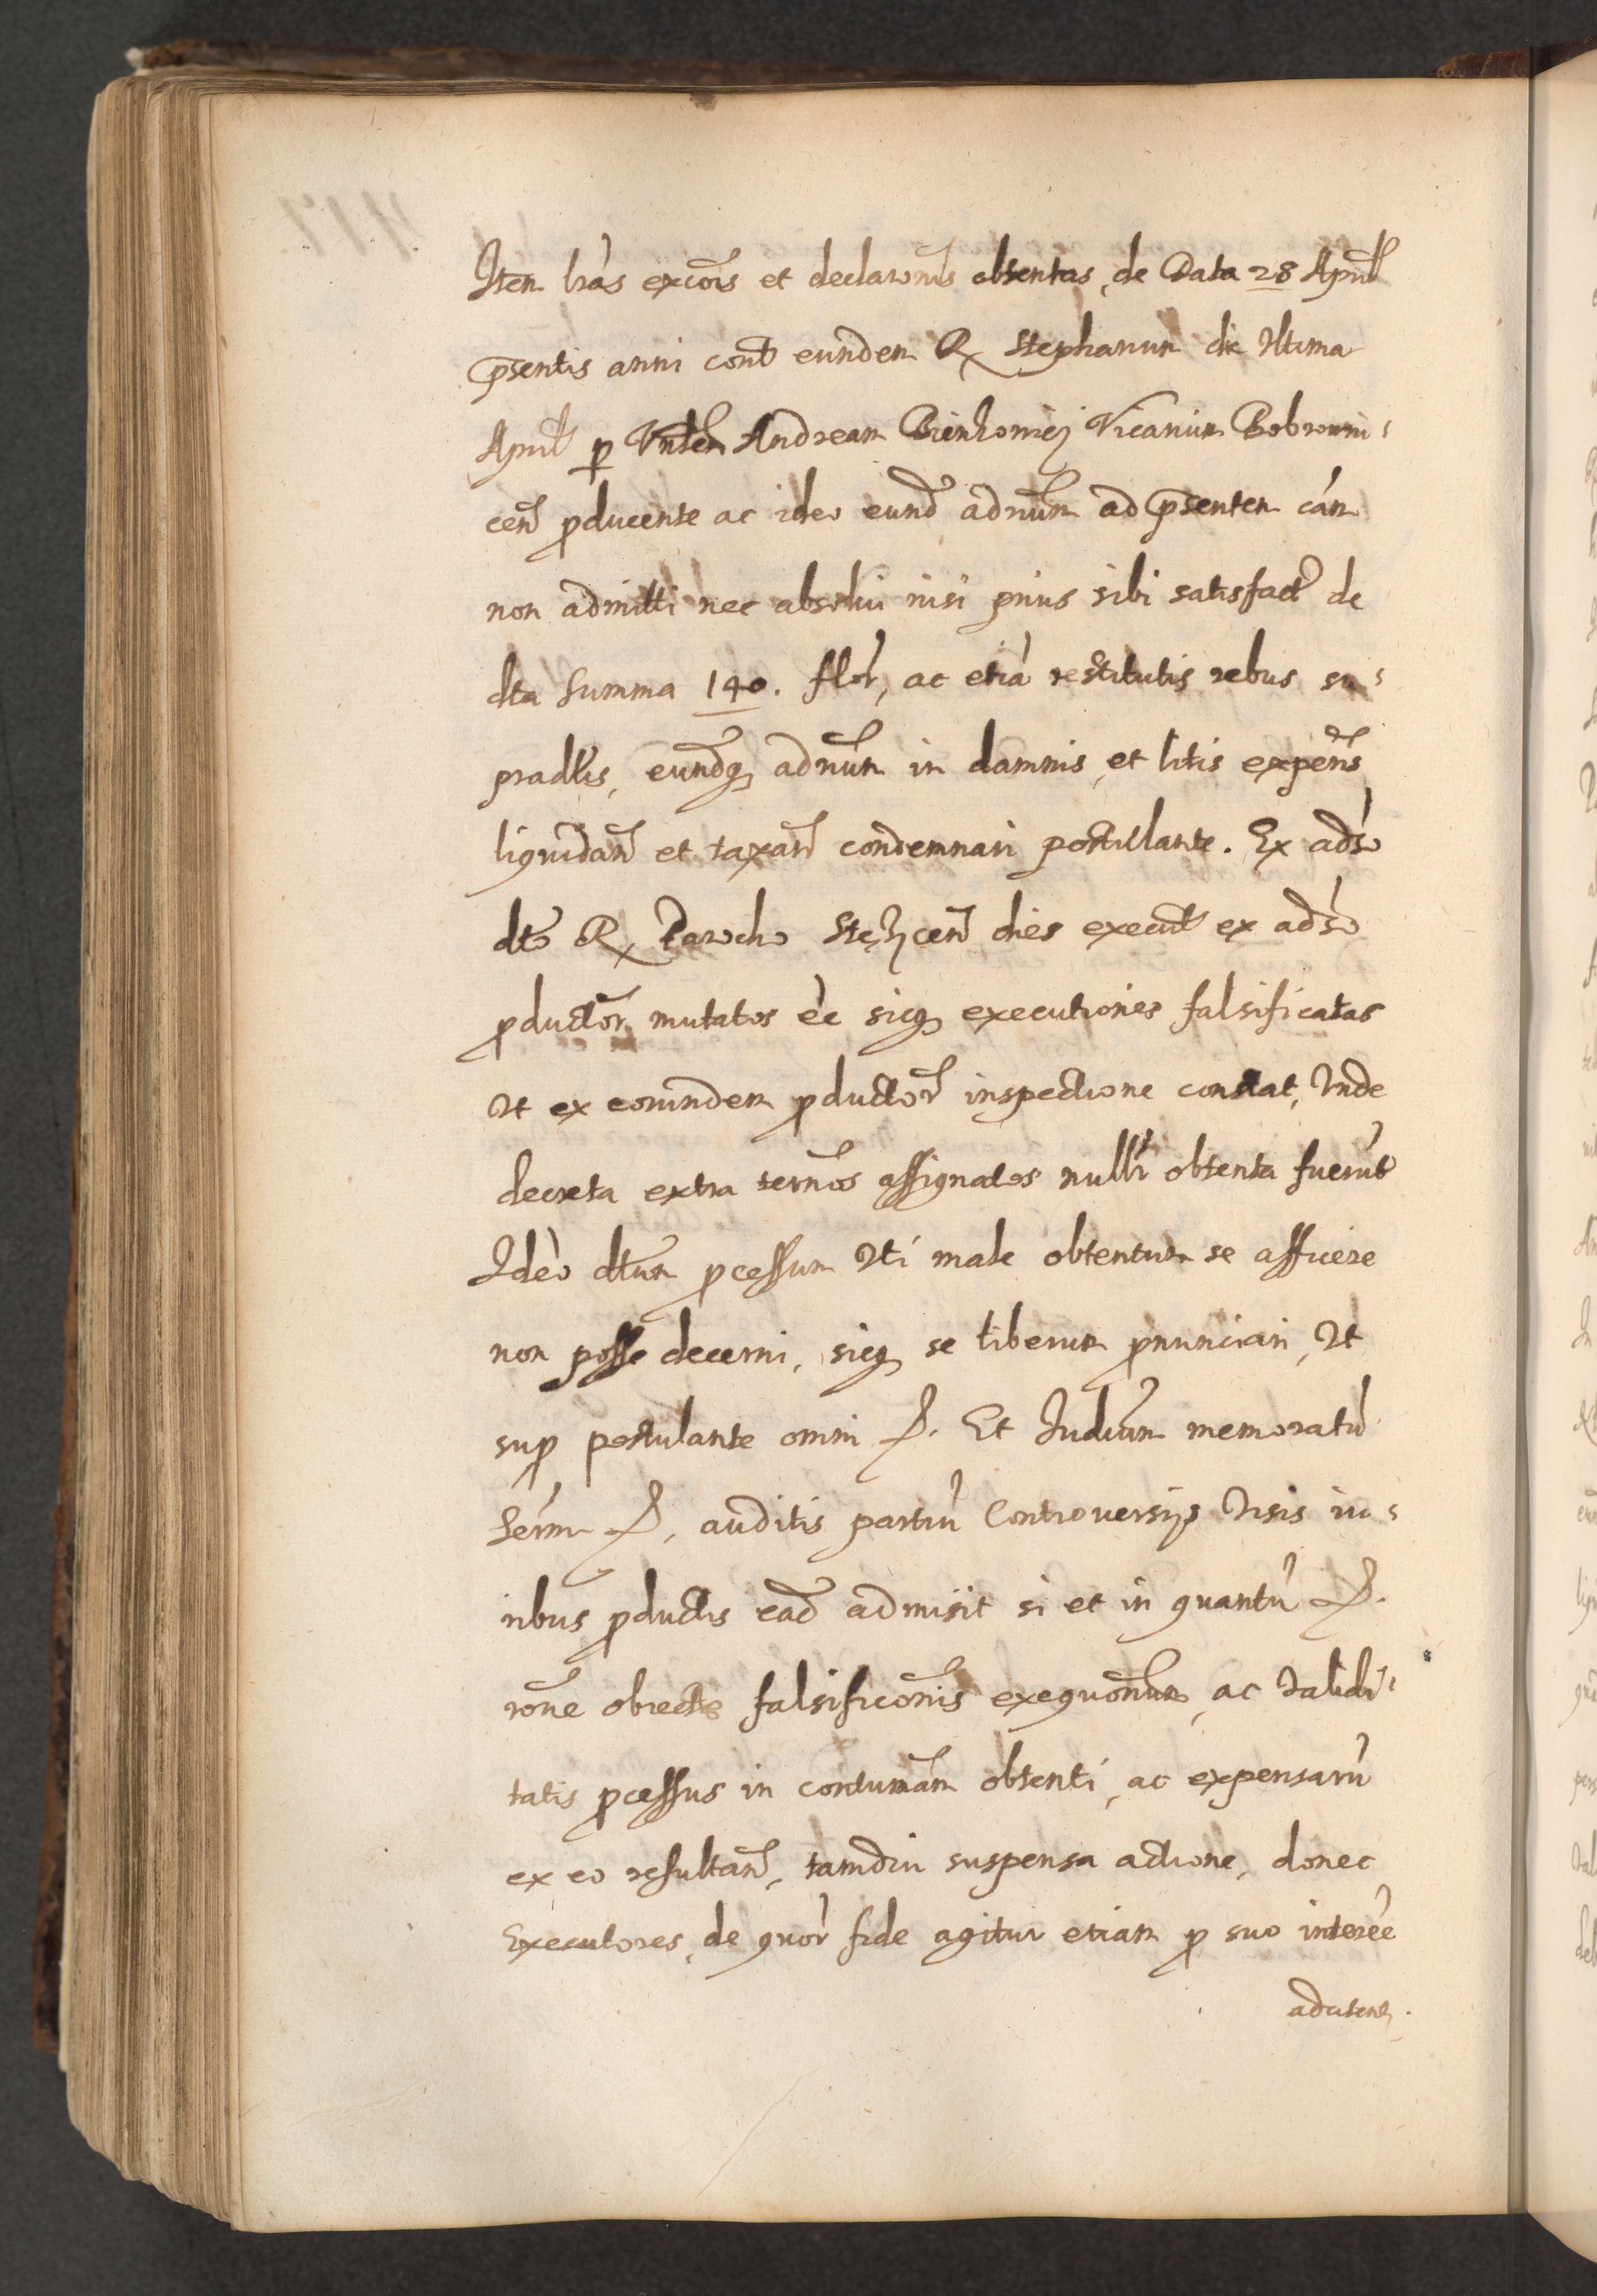 Item lras excōis et declarōnis obtentas, de Data 28 April
psentis anni cont eundem R Stephanum die Vltima
April p Vnblem Andream Bienkowicz Vicarium Bobrowni-
cen pducente ac ideo eund adrium ad psentem cam
non admitti nec absolui nisi prius sibi satisfact de
dta Summa 140. flor, ac etiã restitutis rebus su-
pradtis, eundq adrium in damnis, et litis expens
liquidan et taxan condemnari postulante. Ex adso
dto R Parocho cen dies execut ex adso
pductor mutatos ee sicq executiones falsificatas
Vt ex eorundem pductor inspectione constat, Vnde
decreta extra ternos assignatos nullr obtenta fuerut
Ideo dtum pcessum Vti male obtentum se afficere
non posse decerni, sicq se liberum pnunciari, Vt
sup postulante omni P. Et Iudium memoratũ
Serm P. auditis partiũ Controuersijs Visis iu-
ribus pductis ead admisit si et in quantũ P.
rōne obiecte falsificōnis exequōnum, ac Validi-
tatis pcessus in contumãm obtenti, ac expensarũ
ex eo resultan, tamdiu suspensa actione, donec
Executores, de quor fide agitur etiam p suo interee